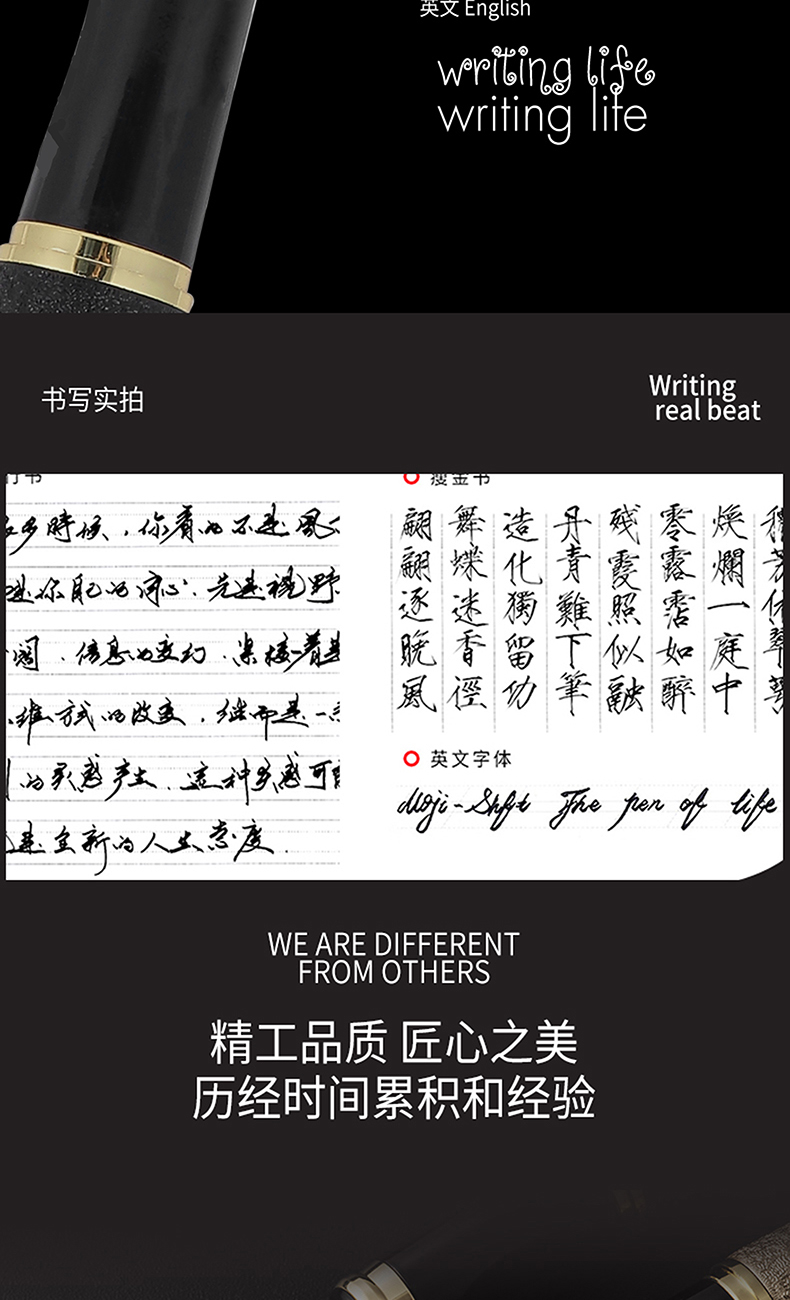 英文 English
writing life
writing life
书写实拍
Writing
real beat
行书
多時候，你看的不是風
你自己的内心.先是視野
阔.信息的变幻.紧接着是
维方式的改变，继而是一
的灵感产生.这种灵感可能
是全新的人生态度.
瘦金书
穠芳依翠萼
焕爛一庭中
零露霑如醉
残霞照似融
丹青難下筆
造化獨留功
舞蝶迷香徑
翩翩逐晚風
英文字体
Moji-Shft The pen of life
WE ARE DIFFERENT
FROM OTHERS
精工品质 匠心之美
历经时间累积和经验